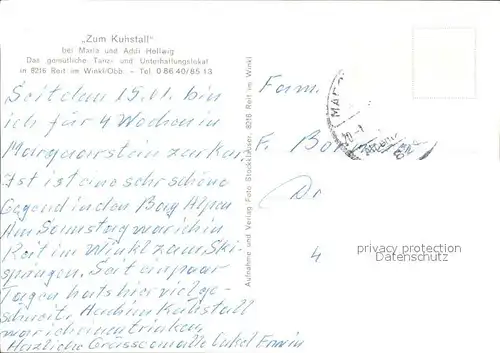 „Zum Kuhstall"
bei Maria und Addi Hellwig
Das gemütliche Tanz- und Unterhaltungslokal
in 8216 Reit im Winkl/Obb. - Tel. 0 86 40/85 13
Seit dem 15.01. bin
ich für 4 Wochen in
Marquartstein zur Kur.
Ist ist eine sehr schöne
Gegend in den Bay Alpen
Am Somstag war ich in
Reit im Winkl zum Ski-
springen. Seit ein paar
Tagen hats hier viel ge-
schneit. Auch im Kuhstall
war ich einen trinken.
Herzliche Grüsse an alle Onkel Erwin
Aufnahme und Verlag Foto Stocklauser 8216 Reit im Winkl
Fam.
F.
Dr
4
privacy protection
Datenschutz